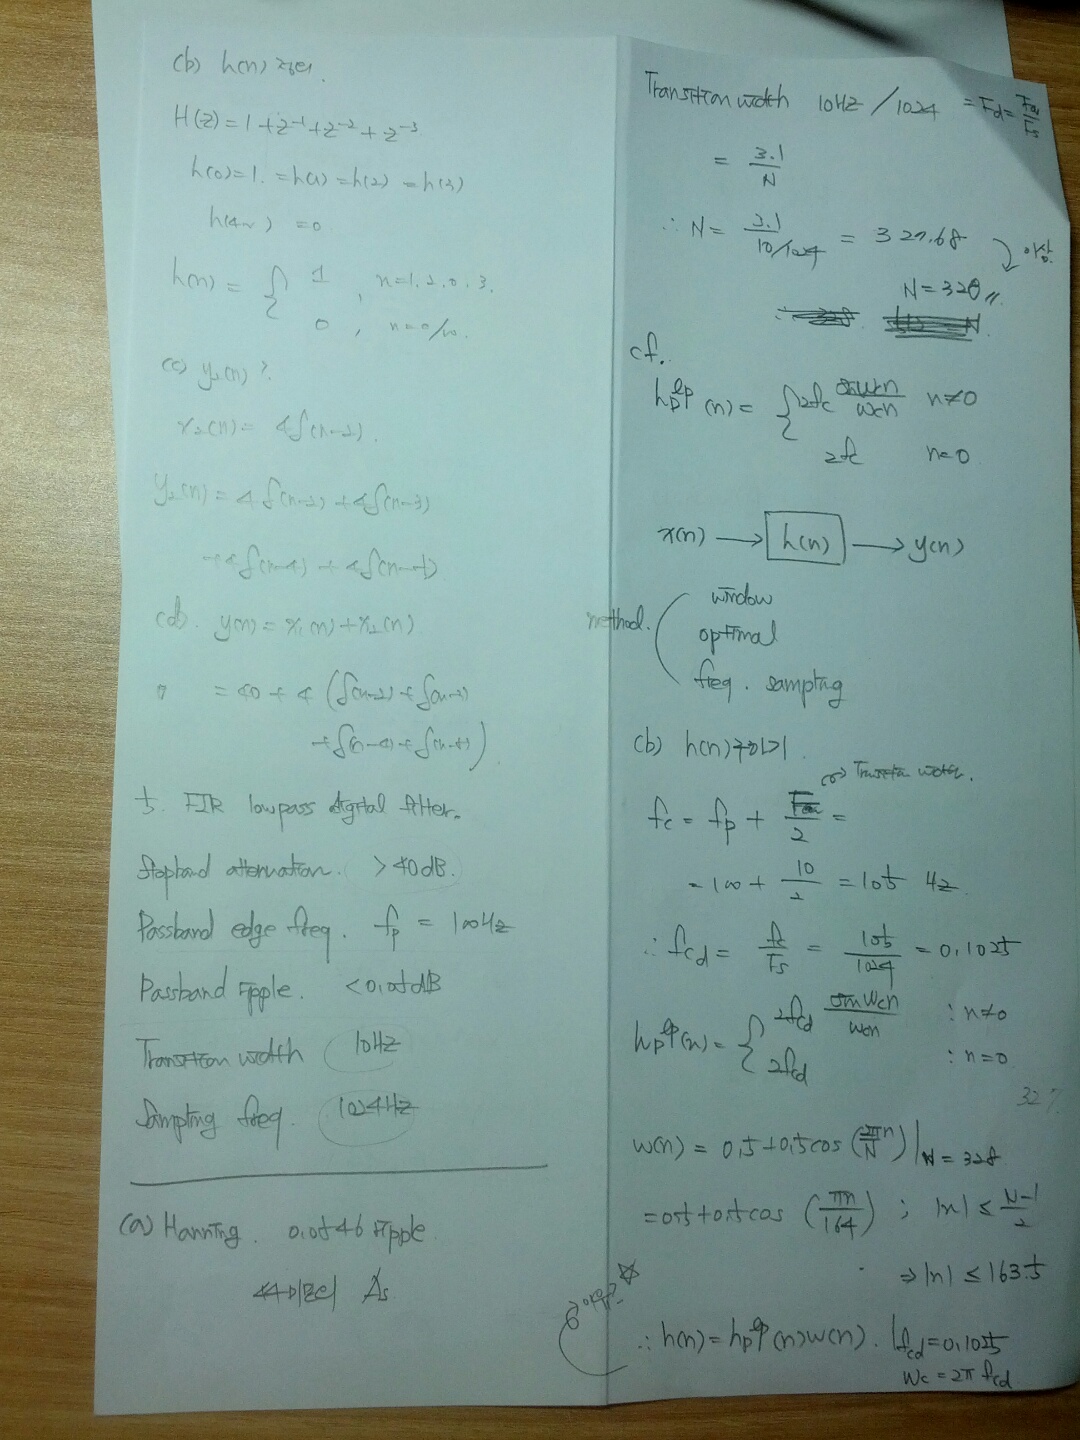 (b) h(n) 정의.
H(z) = 1 + z⁻¹ + z⁻² + z⁻³
h(0)=1. =h(1) =h(2) =h(3)
h(4~) = 0
h(n) = { 1 , n=1. 2. 0. 3.
0 , n = o/w.
(c) y₂(n) ?
x₂(n) = 4δ(n-2).
y₂(n) = 4δ(n-2) + 4δ(n-3)
+4δ(n-4) + 4δ(n-5)
(d). y(n) = x₁(n) + x₂(n)
= 40 + 4 (δ(n-2) + δ(n-3)
+ δ(n-4) + δ(n-5))
5. FIR lowpass digital filter.
Stopband attenuation. > 40dB.
Passband edge freq. fp = 100Hz
Passband ripple. < 0.05dB
Transition width 10Hz
Sampling freq. 1024Hz
(a) Hanning. 0.0546 ripple
44dB As
Transition width 10Hz / 1024 = Fd =
= 3.1/N
∴ N = 3.1/(10/1024) = 327.68
이상
N = 328
cf.
h_D^lp (n) = { 2fc sin wcn / wcn n≠0
2fc n=0
x(n) → h(n) → y(n)
method.
window
optimal
freq. sampling
(b) h(n) 구하기.
→ Transition width.
fc = fp + /2 =
= 100 + 10/2 = 105 Hz
∴ fcd = fc/Fs = 105/1024 = 0.1025
h_D^lp(n) = { 2fcd sin wcn / wcn : n≠0
2fcd : n=0
327
w(n) = 0.5+0.5cos (2πn/N) | N = 328
= 0.5+0.5cos (πn/164) ; |n| ≤ (N-1)/2
⇒ |n| ≤ 163.5
∴ h(n) = h_D^lp(n)w(n). | fcd = 0.1025
wc = 2π fcd